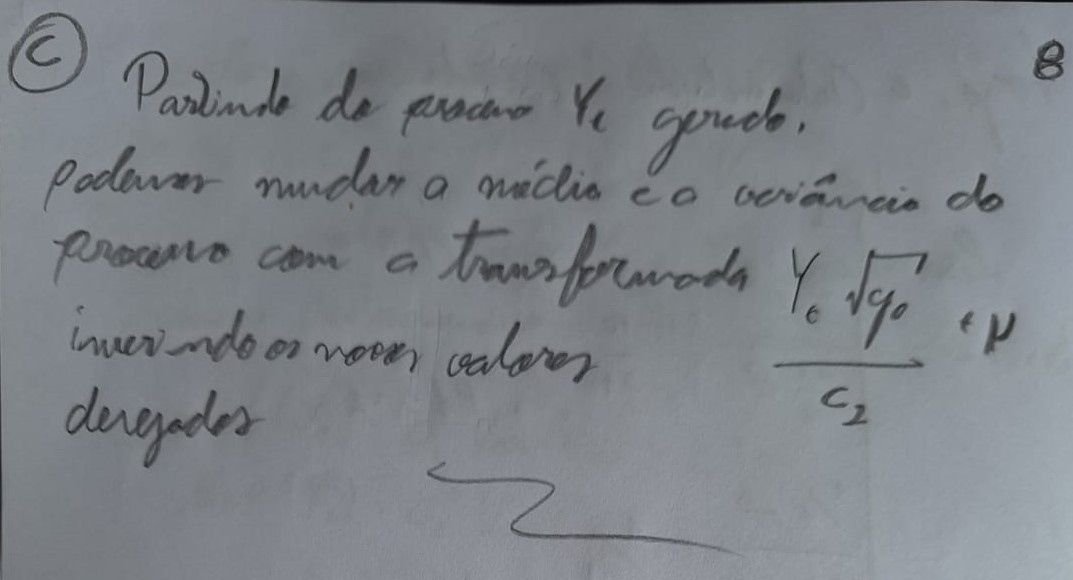 C
8
Partindo do processo Yₜ gerado.
podemos mudar a média e a variância do
processo com a transformada Yₜ √g₀ / c₂ + μ
inserindo os novos valores
desejados